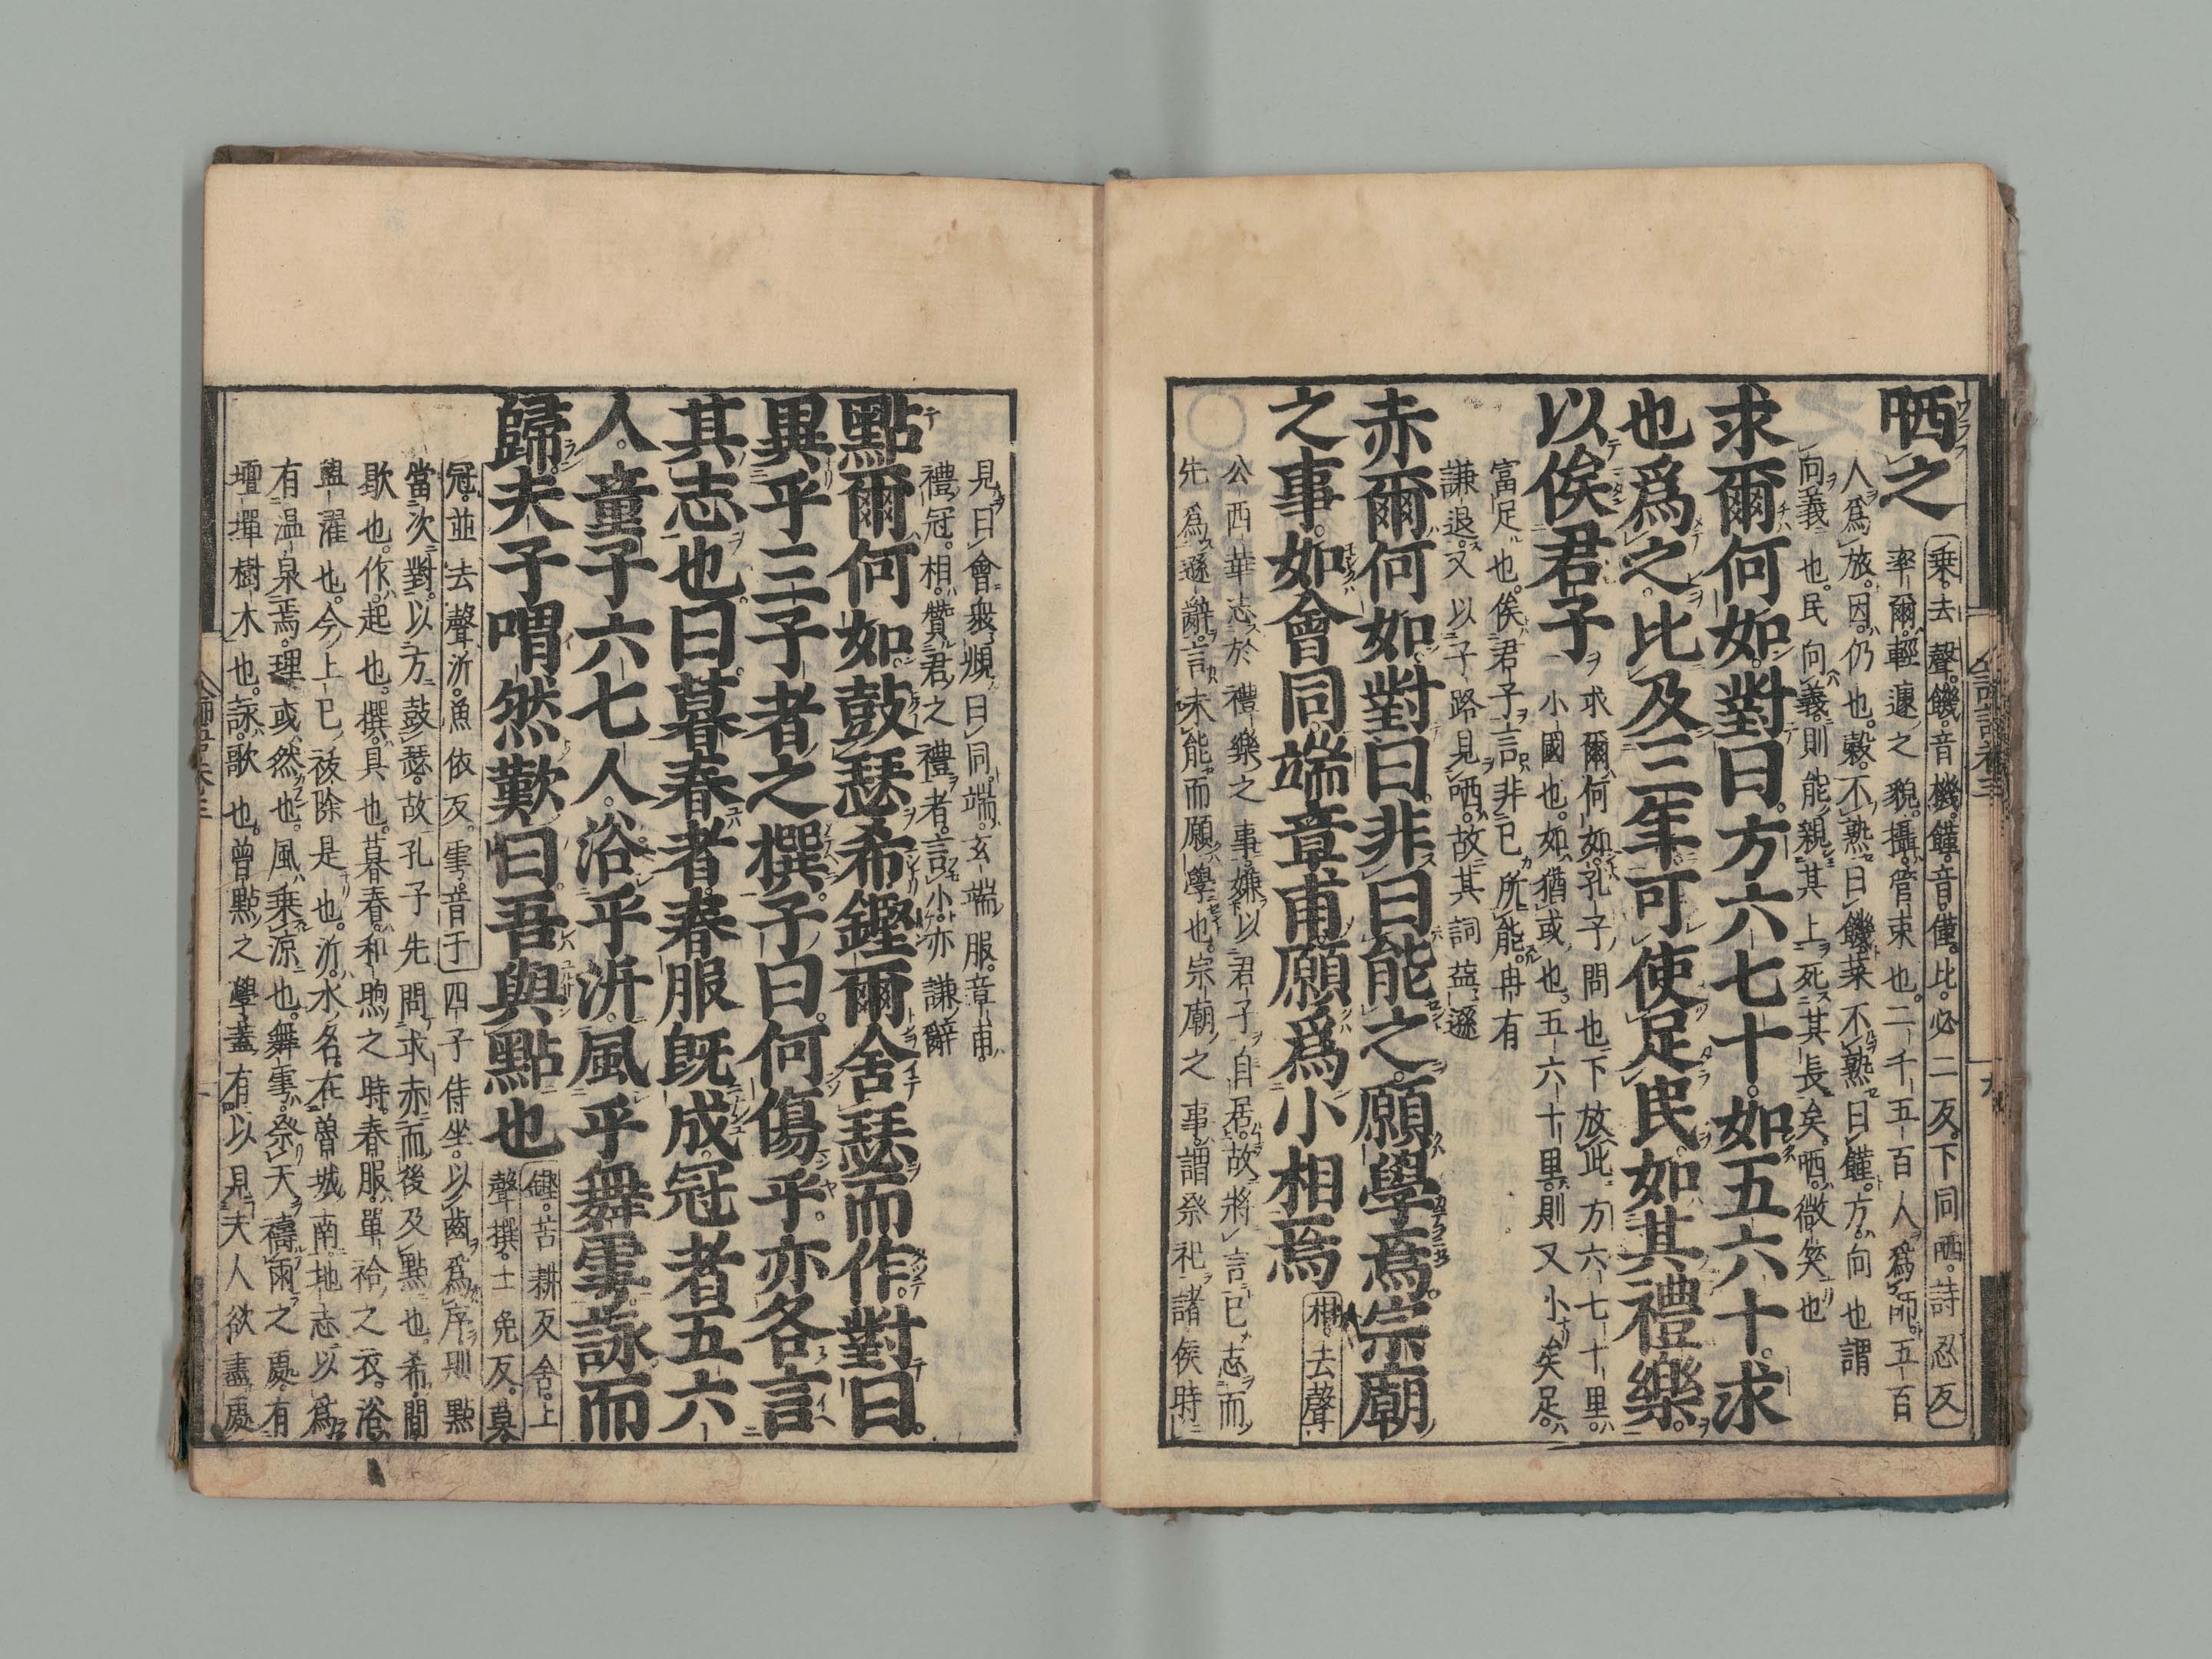 哂之 乗去聲饑音機饉音僅比必二反下同哂詩忍反
率爾輕遽之貌攝管束也二千五百人爲師五百
人爲旅因仍也穀不熟曰饑菜不熟曰饉方向也謂
向義也民向義則能親其上死其長矣哂微笑也
求爾何如對曰方六七十如五六十求
也爲之比及三年可使足民如其禮樂
以俟君子 求爾何如孔子問也下放此方六七十里
小國也如猶或也五六十里則又小矣足
富足也俟君子言非已所能冉有
謙退又以子路見哂故其詞益遜
赤爾何如對曰非曰能之願學焉宗廟
之事如會同端章甫願爲小相焉 相去聲
公西華志於禮樂之事嫌以君子自居故將言已志而
先爲遜辭言未能而願學也宗廟之事謂祭祀諸侯時
見曰會衆頫曰同端玄端服章甫
禮冠相贊君之禮者言小亦謙辭
點爾何如鼓瑟希鏗爾舍瑟而作對曰
異乎三子者之撰子曰何傷乎亦各言
其志也曰暮春者春服既成冠者五六
人童子六七人浴乎沂風乎舞雩詠而
歸夫子喟然歎曰吾與點也 鏗苦耕反舍上
聲撰士免反莫
冠並去聲沂魚依反雩音于四子侍坐以齒爲序則點
當次對以方鼓瑟故孔子先問求赤而後及點也希間
歇也作起也撰具也暮春和煦之時春服單袷之衣浴
盥濯也今上巳祓除是也沂水名在魯城南地志以爲
有温泉焉理或然也風乗涼也舞雩祭天禱雨之處有
壇墠樹木也詠歌也曾點之學蓋有以見夫人欲盡處